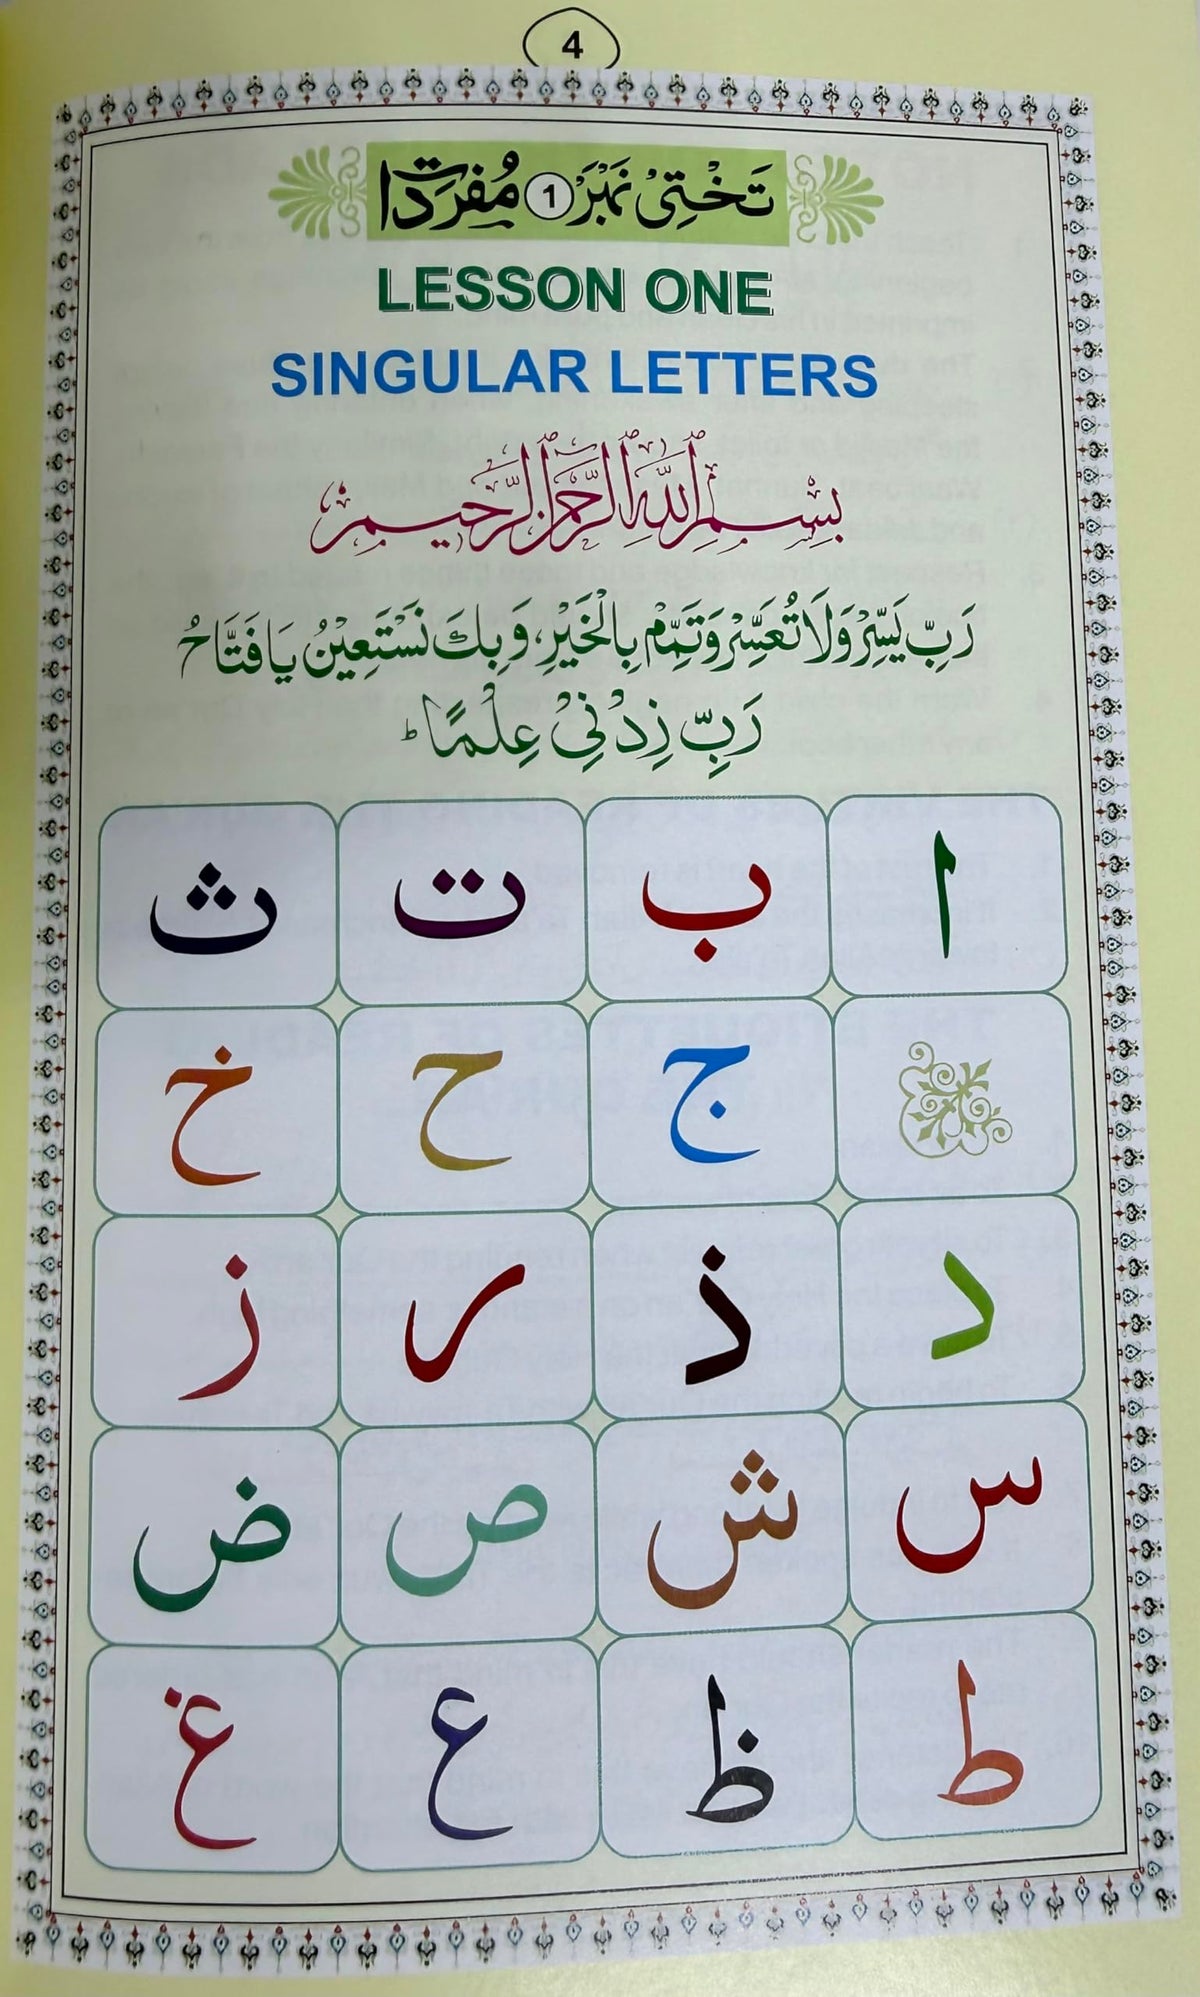 4
تَخْتِیْ نَمْبَرْ 1 مُفْرَدَات
LESSON ONE
SINGULAR LETTERS
بِسْمِ اللّٰهِ الرَّحْمٰنِ الرَّحِيْمِ
رَبِّ يَسِّرْ وَلَا تُعَسِّرْ وَتَمِّمْ بِالْخَيْرِ، وَبِكَ نَسْتَعِيْنُ يَا فَتَّاحُ
رَبِّ زِدْنِيْ عِلْمًا ط
ا ب ت ث
ج ح خ
د ذ ر ز
س ش ص ض
ط ظ ع غ